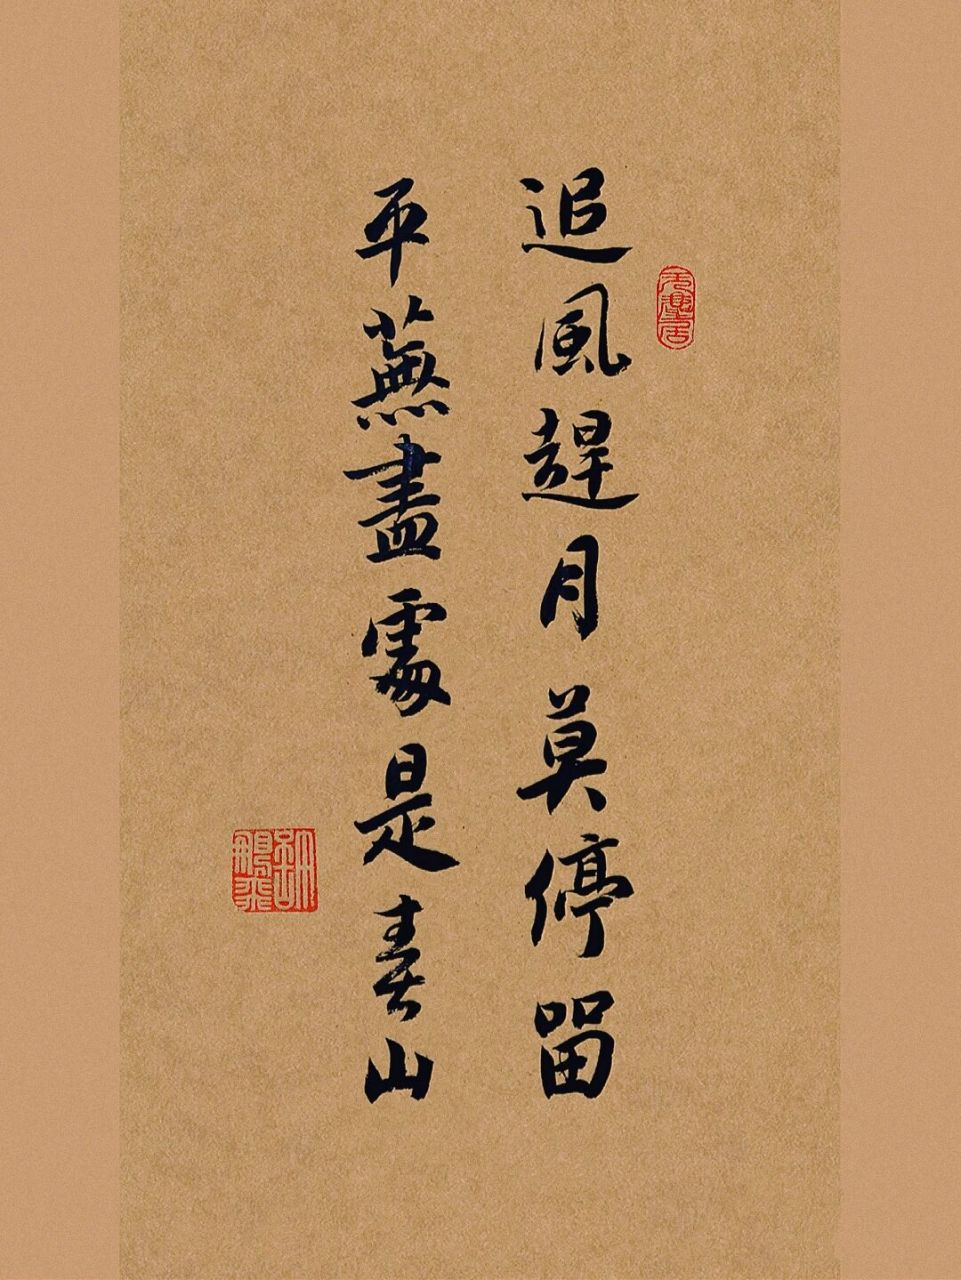 追風趕月莫停留
平蕪盡處是春山